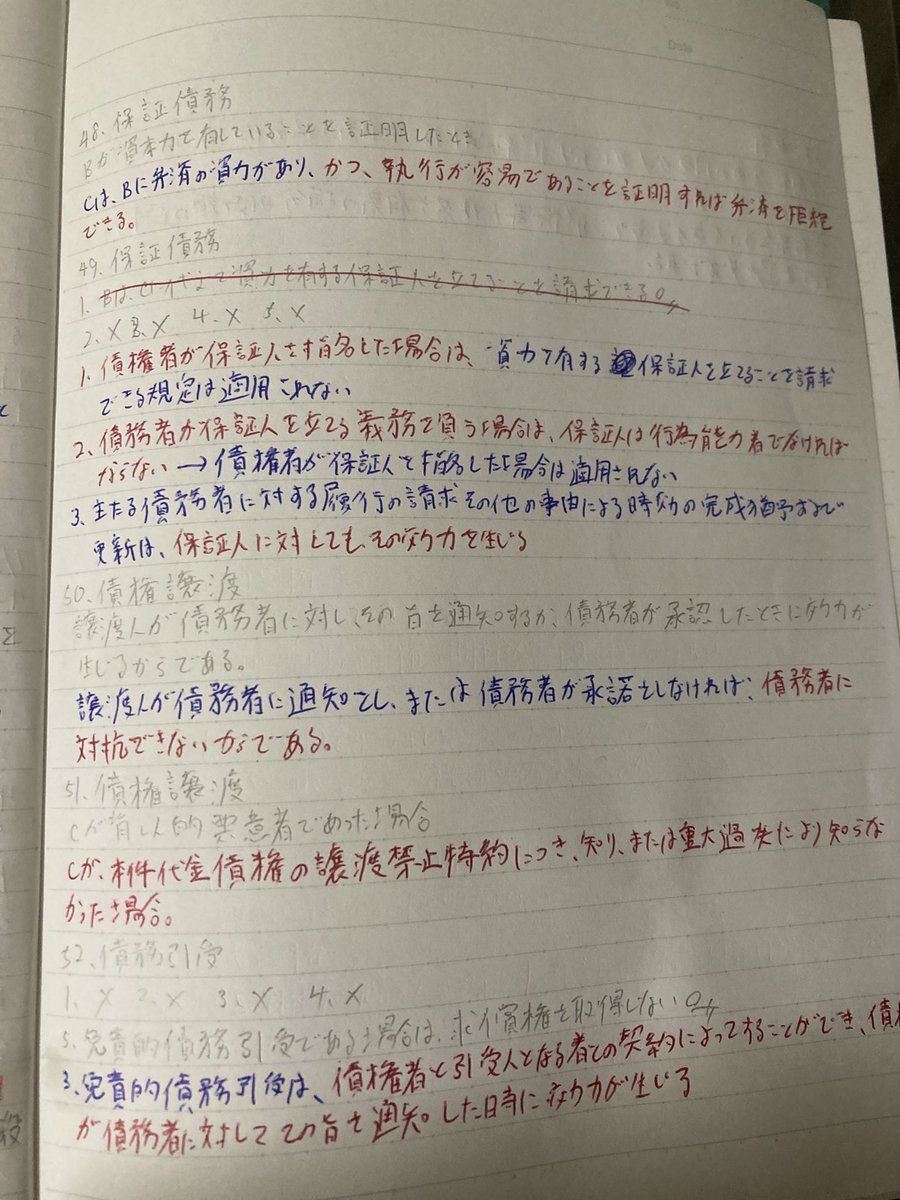 Date
48. 保証債務
Bが資本力を有していることを証明したとき
Cは、Bに弁済の資力があり、かつ、執行が容易であることを証明すれば弁済を拒絶
できる。
49. 保証債務
1. Bは、Cに代えて資力を有する保証人を立てることを請求できる。
2. X 3. X 4. X 5. X
1. 債権者が保証人を指名した場合は、資力を有する保証人を立てることを請求
できる規定は適用されない
2. 債務者が保証人を立てる義務を負う場合は、保証人は行為能力者でなければ
ならない → 債権者が保証人を指名した場合は適用されない
3. 主たる債務者に対する履行の請求その他の事由による時効の完成猶予および
更新は、保証人に対しても、その効力を生じる
50. 債権譲渡
譲渡人が債務者に対し、その旨を通知するか、債務者が承認したときに効力が
生じるからである。
譲渡人が債務者に通知をし、または債務者が承諾をしなければ、債務者に
対抗できないからである。
51. 債権譲渡
Cが背しん的悪意者であった場合
Cが、本件代金債権の譲渡禁止特約につき、知り、または重大過失により知らな
かった場合。
52. 債務引受
1. X 2. X 3. X 4. X
5. 免責的債務引受である場合は、求償権を取得しない。
3. 免責的債務引受は、債権者と引受人となる者との契約によってすることができ、債権
が債務者に対してその旨を通知した時に効力が生じる